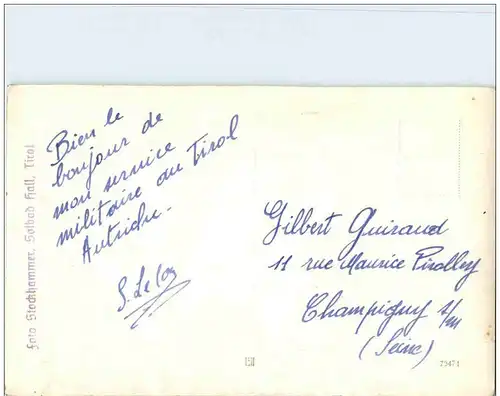 Bien le
bonjour de
mon service
militaire au Tirol
Autriche.
Gilbert Guiraud
11 rue Maurice
Champigny s/m
(Seine)
Foto Stockhammer, Solbad Hall, Tirol